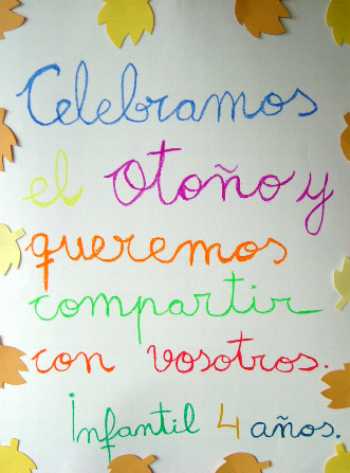 Celebramos
el Otoño y
queremos
compartir
con vosotros.
Infantil 4 años.